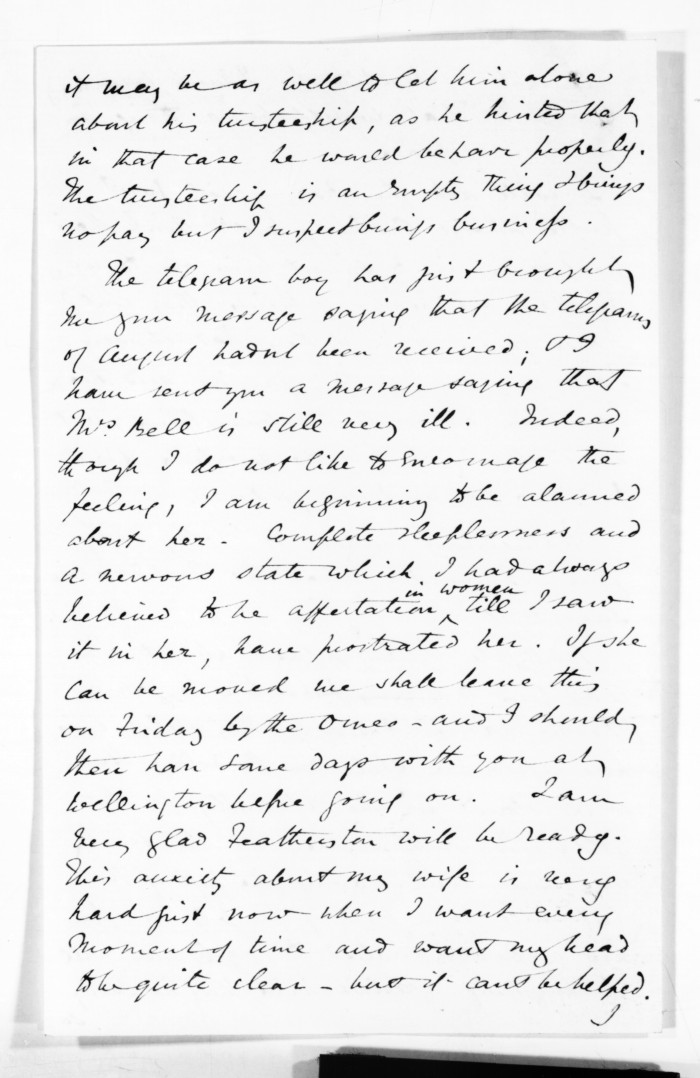 it may be as well to let him alone
about his trusteeship, as he hinted that
in that case he would behave properly.
The trusteeship is an empty thing & brings
no pay but I suspect brings business.
The telegram boy has just brought
me your message saying that the telegrams
of August hadn't been received; & I
have sent you a message saying that
Mrs. Bell is still very ill. Indeed,
though I do not like to encourage the
feeling, I am beginning to be alarmed
about her - Complete sleeplessness and
a nervous state which I had always
believed to be affectation ^ in women till I saw
it in her, have prostrated her. If she
can be moved we shall leave this
on Friday by the Omeo - and I should
then have some days with you at
Wellington before going on. I am
very glad Featherston will be ready.
This anxiety about my wife is very
hard just now when I want every
moment of time and want my head
to be quite clear - but it can't be helped.
I